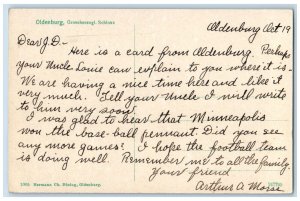 Oldenburg, Grossherzogl. Schloss
Oldenburg Oct 19
Dear J.D-
Here is a card from Oldenburg. Perhaps
your Uncle Louie can explain to you where it is-
We are having a nice time here and like it
very much. Tell your Uncle I will write
to him very soon.
I was glad to hear that Minneapolis
won the base-ball pennant. Did you see
any more games? I hope the football team
is doing well. Remember me to all the family.
Your friend
Arthur A. Morse
Hermann Ch. Büsing, Oldenburg.